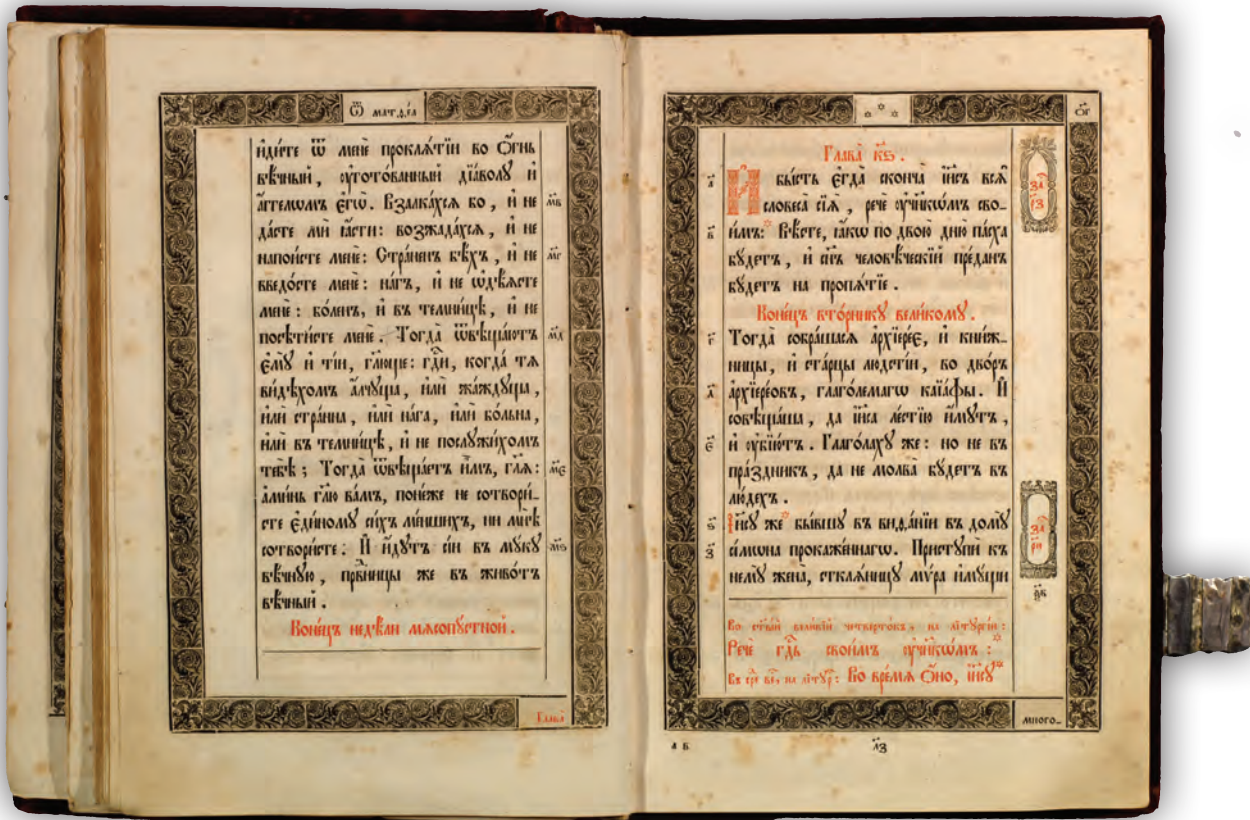 Ѿ матѳеа
и҆ди́те ѿ менѐ проклѧ́тїи во Ѻ҆́гнь
вѣ́чный, ᲂу҆гото́ванный дїа́волу и҆
а҆́ггелѡмъ є҆гѡ̀. Взалка́хсѧ бо, и҆ не
мв
да́сте ми̏ ꙗ҆́сти: возжада́хсѧ, и҆ не
напои́сте менѐ: Стра́ненъ бѣ́хъ, и҆ не
мг
введо́сте менѐ: на́гъ, и҆ не ѡ҆дѣ́ѧсте
менѐ: бо́ленъ, и҆ въ темни́цѣ, и҆ не
посѣти́сте менѐ. Тогда̀ ѿвѣща́ютъ
мд
є҆мꙋ̀ и҆ ті́и, гл҃юще: гдⷭ҇и, когда̀ тѧ
ви́дѣхомъ а҆́лчꙋща, и҆лѝ жа́ждꙋща,
и҆лѝ стра́нна, и҆лѝ на́га, и҆лѝ бо́льна,
и҆лѝ въ темни́цѣ, и҆ не послꙋжи́хомъ
тебѣ̀; Тогда̀ ѿвѣща́етъ и҆̀мъ, гл҃ѧ:
ме
а҆ми́нь гл҃ю ва́мъ, поне́же не сотвори́-
сте є҆ди́номꙋ си́хъ ме́ншихъ, ни мнѣ̀
сотвори́сте: И҆ и҆́дꙋтъ сі́и въ мꙋ́кꙋ
мѕ
вѣ́чнꙋю, првⷣницы же въ живо́тъ
вѣ́чный.
Коне́цъ недѣ́ли мѧсопꙋ́стной.
Глава̀
ѻ҃г
Глава̀ кѕ.
И҆ бы́сть є҆гда̀ сконча̀ і҆и҃съ всѧ̑
а
словеса̀ сїѧ̑, речѐ ᲂу҆чн҃кѡ́мъ сво-
и҆̀мъ: Вѣ́сте, ꙗ҆́кѡ по двою̀ дню̀ па́сха
в
бꙋ́детъ, и҆ сн҃ъ человѣ́ческїй пре́данъ
бꙋ́детъ на пропѧ́тїе.
Коне́цъ вто́рникꙋ вели́комꙋ.
Тогда̀ собра́шасѧ а҆рхїере́є, и҆ кни́ж-
г
ницы, и҆ ста́рцы людсті́и, во дво́ръ
а҆рхїере́овъ, глаго́лемагѡ каїа́фы. И҆
д
совѣща́ша, да і҆и҃са ле́стїю и҆́мꙋтъ,
и҆ ᲂу҆бїю́тъ. Глаго́лахꙋ же: но не въ
є
пра́здникъ, да не молва̀ бꙋ́детъ въ
лю́дехъ.
І҆и҃сꙋ же бы́вшꙋ въ виѳа́нїи въ домꙋ̀
ѕ
сі́мѡна прокаже́ннагѡ. Пристꙋпѝ къ
з
немꙋ̀ жена̀, сткла́нницꙋ мѵ́ра и҆мꙋ́щи
Во ст҃ы́й вели́кїй четверто́къ, на літꙋргі́и:
Речѐ гдⷭ҇ь свои̑мъ ᲂу҆чн҃кѡ́мъ:
Въ сре́ вє́, на літꙋр: Во вре́мѧ Ѻ҆́но, і҆и҃сꙋ
мно́го-
а в
лз